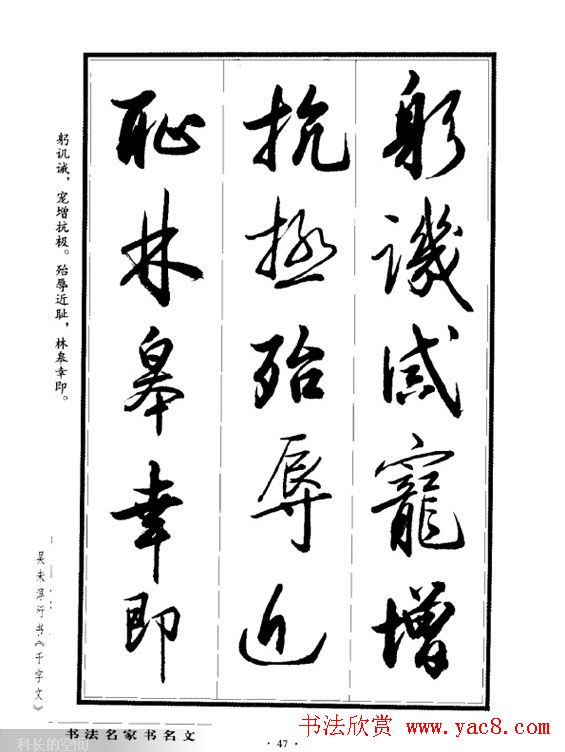 躬譏誡寵增
抗極殆辱近
恥林皋幸即
躬讥诫，宠增抗极。殆辱近耻，林皋幸即。
吴未淳行书《千字文》
书法名家书名文
·47·
科长的空间
书法欣赏 www.yac8.com